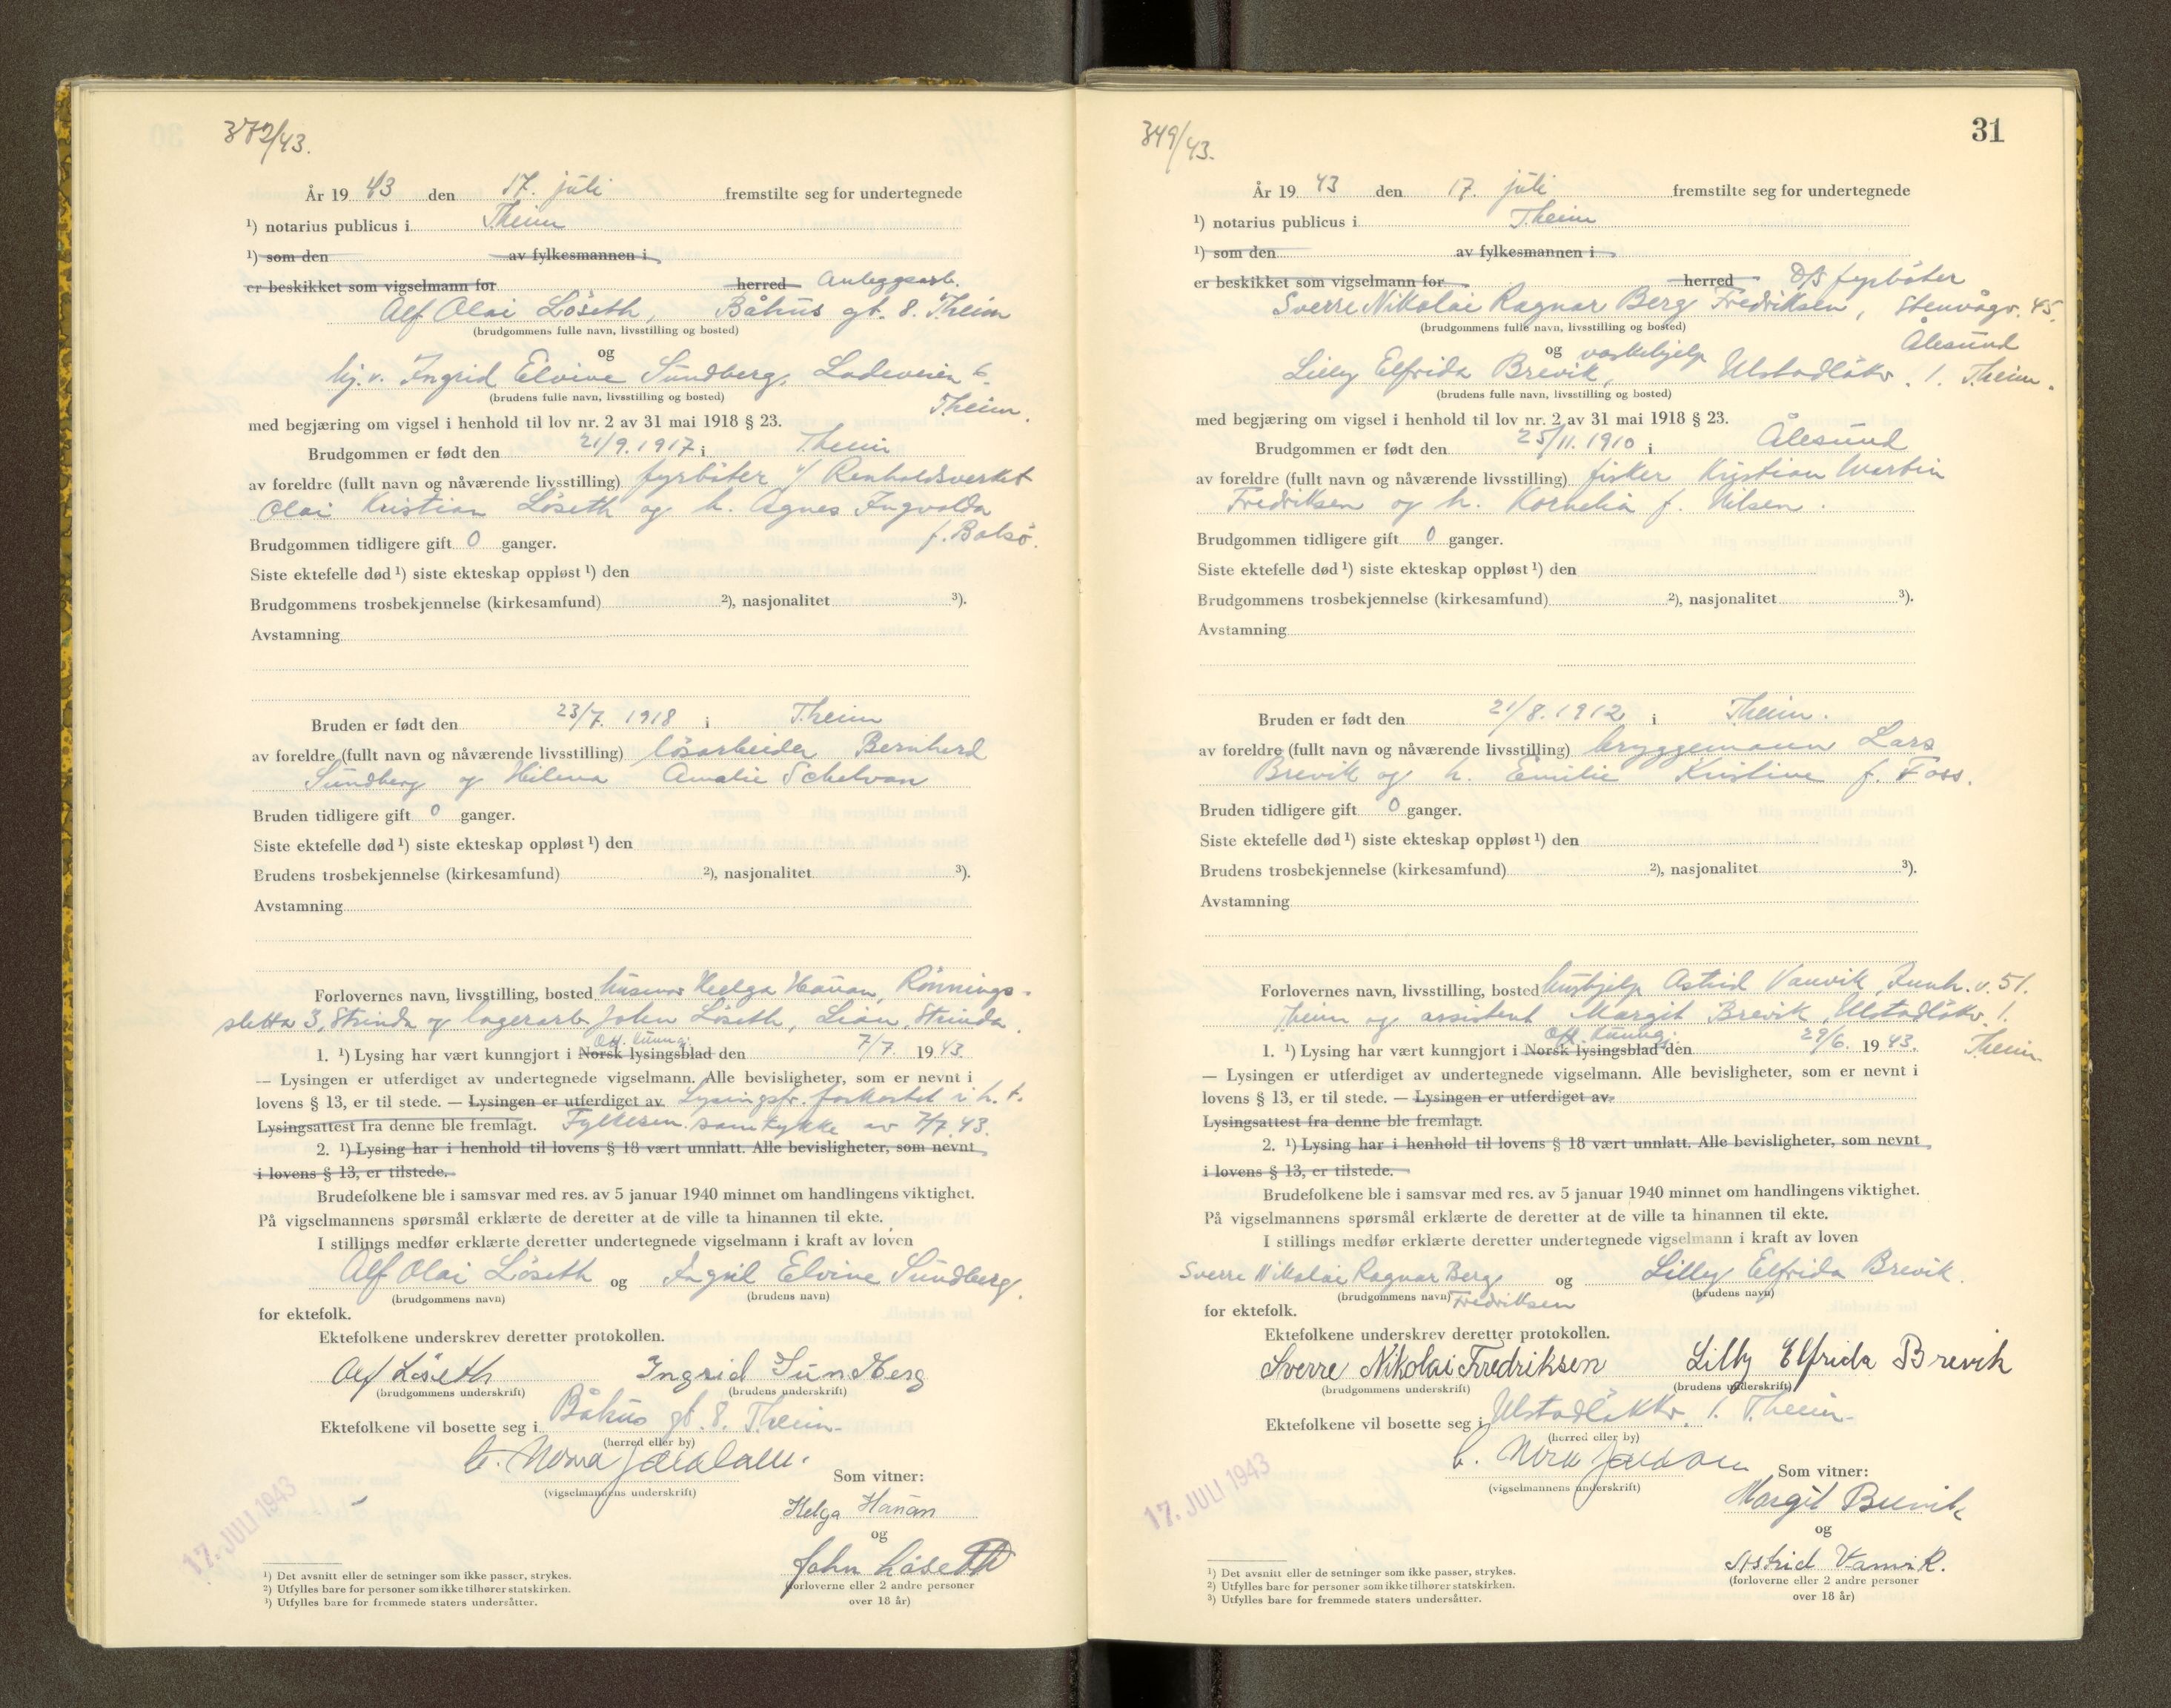 372/43.
År 19 43 den 17. juli fremstilte seg for undertegnede
¹) notarius publicus i Theim
¹) som den av fylkesmannen i
er beskikket som vigselmann for herred Anleggsarb.
Alf Olai Löseth, Båhus gt. 8. Theim
(brudgommens fulle navn, livsstilling og bosted)
og
hj. v. Ingrid Elvine Sundberg, Ladeveien 6.
(brudens fulle navn, livsstilling og bosted)
Theim.
med begjæring om vigsel i henhold til lov nr. 2 av 31 mai 1918 § 23.
Brudgommen er født den 21/9. 1917 i Theim
av foreldre (fullt navn og nåværende livsstilling) fyrböter v/ Renholdsverket
Olai Kristian Löseth og h. Agnes Ingvalda
f. Balsö.
Brudgommen tidligere gift 0 ganger.
Siste ektefelle død ¹) siste ekteskap oppløst ¹) den
Brudgommens trosbekjennelse (kirkesamfund) ²), nasjonalitet ³).
Avstamning
Bruden er født den 23/7. 1918 i Theim
av foreldre (fullt navn og nåværende livsstilling) lösarbeider Bernhard
Sundberg og Hilena Amalie Schelvan
Bruden tidligere gift 0 ganger.
Siste ektefelle død ¹) siste ekteskap oppløst ¹) den
Brudens trosbekjennelse (kirkesamfund) ²), nasjonalitet ³).
Avstamning
Forlovernes navn, livsstilling, bosted husmor Helga Hanan, Rönnings-
sletta 3, Strinda og lagerarb. John Löseth, Lian, Strinda.
Off. kunng.
1. ¹) Lysing har vært kunngjort i Norsk lysingsblad den 7/7. 19 43.
— Lysingen er utferdiget av undertegnede vigselmann. Alle bevisligheter, som er nevnt i
lovens § 13, er til stede. — Lysingen er utferdiget av Lysingsfr. forkortet i h. t.
Lysingsattest fra denne ble fremlagt. Fylkesm. samtykke av 7/7. 43.
2. ¹) Lysing har i henhold til lovens § 18 vært unnlatt. Alle bevisligheter, som nevnt
i lovens § 13, er tilstede.
Brudefolkene ble i samsvar med res. av 5 januar 1940 minnet om handlingens viktighet.
På vigselmannens spørsmål erklærte de deretter at de ville ta hinannen til ekte.
I stillings medfør erklærte deretter undertegnede vigselmann i kraft av loven
Alf Olai Löseth og Ingrid Elvine Sundberg.
(brudgommens navn) (brudens navn)
for ektefolk.
Ektefolkene underskrev deretter protokollen.
Alf Löseth Ingrid Sundberg
(brudgommens underskrift) (brudens underskrift)
Ektefolkene vil bosette seg i Båhus gt. 8. Theim.
(herred eller by)
(vigselmannens underskrift)
Som vitner:
Helga Hanan
og
John Løseth
(forloverne eller 2 andre personer
over 18 år)
17. JULI 1943
¹) Det avsnitt eller de setninger som ikke passer, strykes.
²) Utfylles bare for personer som ikke tilhører statskirken.
³) Utfylles bare for fremmede staters undersåtter.
31
349/43.
År 19 43 den 17. juli fremstilte seg for undertegnede
¹) notarius publicus i Theim
¹) som den av fylkesmannen i
er beskikket som vigselmann for herred D/S fyrböter
Sverre Nikolai Ragnar Berg Fredriksen, Stenvågv. 45.
(brudgommens fulle navn, livsstilling og bosted) Ålesund
og vaskehjelp
Lilly Elfrida Brevik, Ulstadløkv. 1. Theim.
(brudens fulle navn, livsstilling og bosted)
med begjæring om vigsel i henhold til lov nr. 2 av 31 mai 1918 § 23.
Brudgommen er født den 25/11. 1910 i Ålesund
av foreldre (fullt navn og nåværende livsstilling) fisker Kristian Martin
Fredriksen og h. Kornelia f. Nilsen.
Brudgommen tidligere gift 0 ganger.
Siste ektefelle død ¹) siste ekteskap oppløst ¹) den
Brudgommens trosbekjennelse (kirkesamfund) ²), nasjonalitet ³).
Avstamning
Bruden er født den 21/8. 1912 i Theim.
av foreldre (fullt navn og nåværende livsstilling) bryggemann Lars
Brevik og h. Emilie Kristine f. Foss.
Bruden tidligere gift 0 ganger.
Siste ektefelle død ¹) siste ekteskap oppløst ¹) den
Brudens trosbekjennelse (kirkesamfund) ²), nasjonalitet ³).
Avstamning
Forlovernes navn, livsstilling, bosted hushjelp Astrid Vanvik, Innh. v. 51.
Theim og assistent Margit Brevik, Ulstadløkv. 1.
Off. kunng. Theim
1. ¹) Lysing har vært kunngjort i Norsk lysingsblad den 29/6. 19 43.
— Lysingen er utferdiget av undertegnede vigselmann. Alle bevisligheter, som er nevnt i
lovens § 13, er til stede. — Lysingen er utferdiget av
Lysingsattest fra denne ble fremlagt.
2. ¹) Lysing har i henhold til lovens § 18 vært unnlatt. Alle bevisligheter, som nevnt
i lovens § 13, er tilstede.
Brudefolkene ble i samsvar med res. av 5 januar 1940 minnet om handlingens viktighet.
På vigselmannens spørsmål erklærte de deretter at de ville ta hinannen til ekte.
I stillings medfør erklærte deretter undertegnede vigselmann i kraft av loven
Sverre Nikolai Ragnar Berg og Lilly Elfrida Brevik.
(brudgommens navn) Fredriksen (brudens navn)
for ektefolk.
Ektefolkene underskrev deretter protokollen.
Sverre Nikolai Fredriksen Lilly Elfrida Brevik
(brudgommens underskrift) (brudens underskrift)
Ektefolkene vil bosette seg i Ulstadløkkv. 1. Theim.
(herred eller by)
(vigselmannens underskrift)
Som vitner:
Margit Brevik
og
Astrid Vanvik.
(forloverne eller 2 andre personer
over 18 år)
17. JULI 1943
¹) Det avsnitt eller de setninger som ikke passer, strykes.
²) Utfylles bare for personer som ikke tilhører statskirken.
³) Utfylles bare for fremmede staters undersåtter.